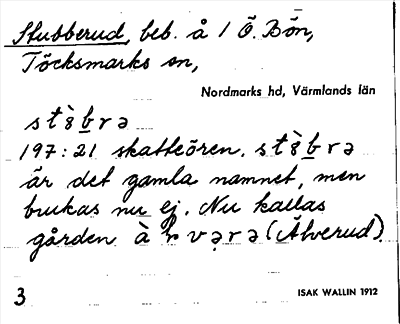 Stubberud, beb. å 1 Ö. Bön,
Töcksmarks sn,
Nordmarks hd, Värmlands län
sto̍brə
197:21 skatteören.
är det gamla namnet, men
brukas nu ej. Nu kallas
gården (Älverud).
3
ISAK WALLIN 1912